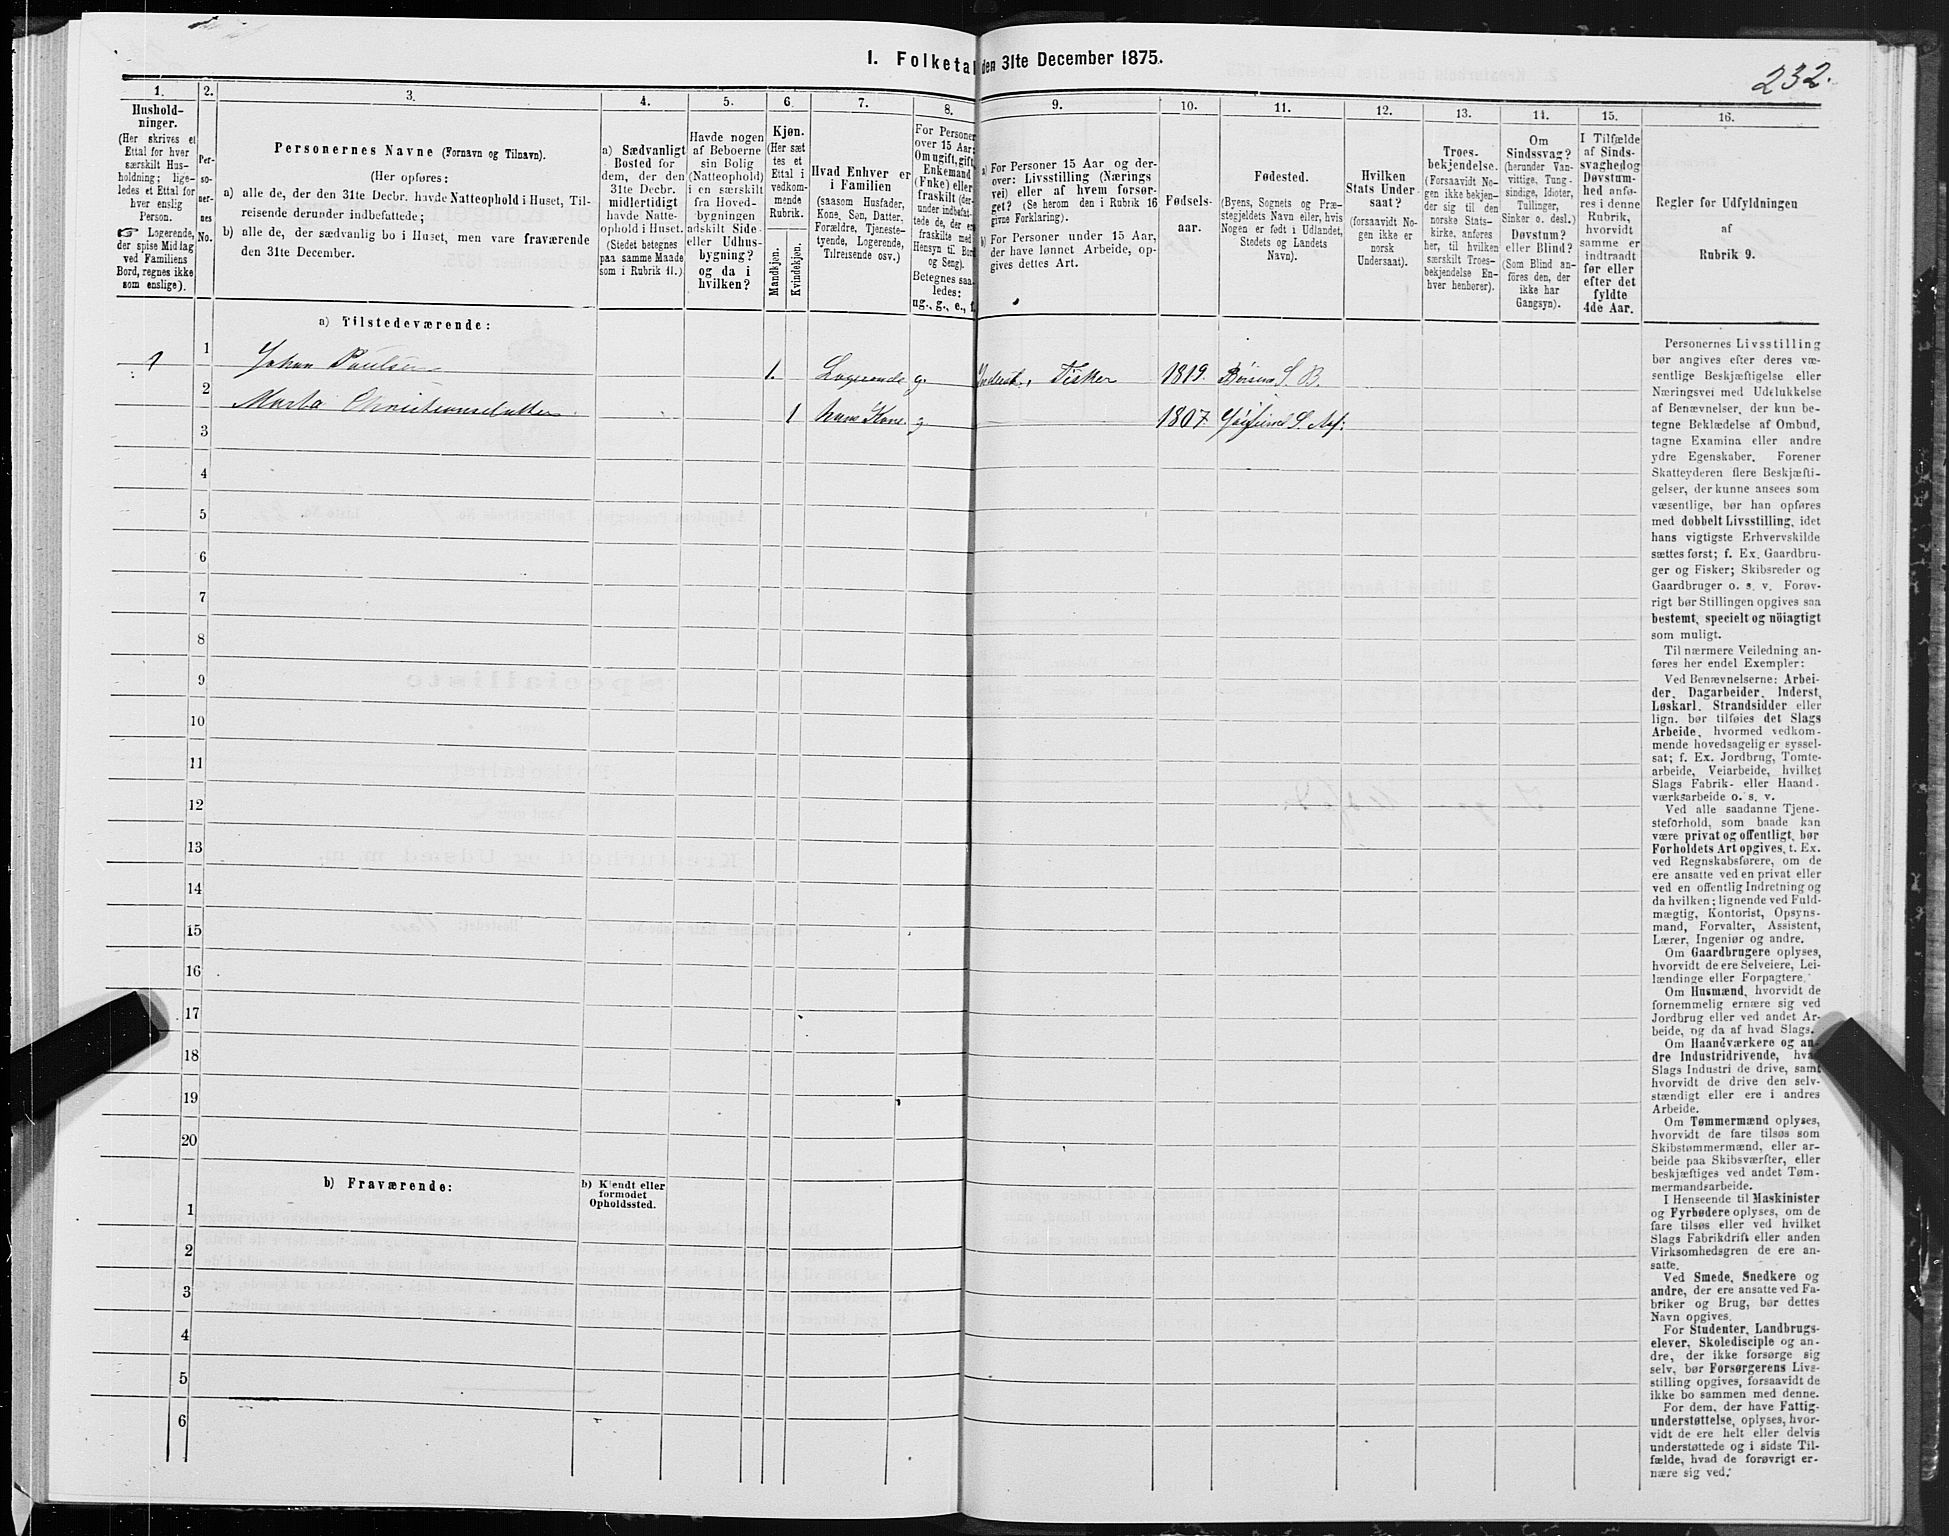 1. Folketal den 31te December 1875.
232.
1. 2. 3. 4. 5. 6. 7. 8. 9. 10. 11. 12. 13. 14. 15. 16.
Hushold-
ninger.
(Her skrives et
Ettal for hver
særskilt Hus-
holdning; lige-
ledes et Ettal for
hver enslig
Person.
☞ Logerende,
der spise Middag
ved Familiens
Bord, regnes ikke
som enslige).
Per-
so-
ner-
nes
No.
Personernes Navne (Fornavn og Tilnavn).
(Her opføres:
a) alle de, der den 31te Decbr. havde Natteophold i Huset, Til-
reisende derunder indbefattede;
b) alle de, der sædvanlig bo i Huset, men vare fraværende
den 31te December.
a) Sædvanligt
Bosted for
dem, der den
31te Decbr.
midlertidigt
havde Natte-
ophold i Huset.
(Stedet betegnes
paa samme Maade
som i Rubrik 11.)
Havde nogen
af Beboerne
sin Bolig
(Natteophold)
i en særskilt
fra Hoved-
bygningen
adskilt Side-
eller Udhus-
bygning?
og da i
hvilken?
Kjøn.
(Her sæt
tes et
Ettal i
vedkom-
mende
Rubrik.
Mandkjøn.
Kvindekjøn.
Hvad Enhver er
i Familien
(saasom Husfader,
Kone, Søn, Datter,
Forældre, Tjeneste-
tyende, Logerende,
Tilreisende osv.)
For Personer
over 15 Aar:
Om ugift, gift,
Enkemand
(Enke) eller
fraskilt (der-
under indbefat-
tede de, der ere
fraskilte med
Hensyn til Bord
og Seng).
Betegnes saa-
ledes:
ug., g., e., f.
a) For Personer 15 Aar og der-
over: Livsstilling (Nærings
vei) eller af hvem forsør-
get? (Se herom den i Rubrik 16
givne Forklaring).
b) For Personer under 15 Aar,
der have lønnet Arbeide, op-
gives dettes Art.
Fødsels-
aar.
Fødested.
(Byens, Sognets og Præ-
stegjeldets Navn eller, hvis
Nogen er født i Udlandet,
Stedets og Landets
Navn).
Hvilken
Stats Under-
saat?
(forsaavidt No-
gen ikke er
norsk
Undersaat).
Troes-
bekjendelse.
(Forsaavidt No-
gen ikke bekjen-
der sig til den
norske Stats-
kirke, anføres
her, til hvilken
særskilt Troes-
bekjendelse En-
hver henhører).
Om
Sindssvag?
(herunder Van-
vittige, Tung-
sindige, Idioter,
Tullinger,
Sinker o. desl.)
Døvstum?
eller Blind?
(Som Blind an-
føres den, der
ikke har
Gangsyn).
I Tilfælde
af Sinds-
svaghed og
Døvstum-
hed anfø-
res i denne
Rubrik,
hvorvidt
samme er
indtraadt
før eller
efter det
fyldte
4de Aar.
Regler for Udfyldningen
af
Rubrik 9.
a) Tilstedeværende:
1 1 Johan Paulsen 1. Logerende g. Inderst, Fisker 1819. S. B.
2 Marta Christiansdatter 1 hans Kone. g. 1807
3
4
5
6
7
8
9
10
11
12
13
14
15
16
17
18
19
20
b) Fraværende:
b) Kjendt eller
formodet
Opholdssted.
1
2
3
4
5
6
Personernes Livsstilling
bør angives efter deres væ-
sentlige Beskjæftigelse eller
Næringsvei med Udelukkelse
af Benævnelser, der kun be-
tegne Beklædelse af Ombud,
tagne Examina eller andre
ydre Egenskaber. Forener
Skatteyderen flere Beskjæfti-
gelser, der kunne ansees som
væsentlige, bør han opføres
med dobbelt Livsstilling, idet
hans vigtigste Erhvervskilde
sættes først; f. Ex. Gaardbru-
ger og Fisker; Skibsreder og
Gaardbruger o. s. v. Forøv-
rigt bør Stillingen opgives saa
bestemt, specielt og nöiagtigt
som muligt.
Til nærmere Veiledning an-
føres her endel Exempler:
Ved Benævnelserne: Arbei-
der, Dagarbeider, Inderst,
Løskarl, Strandsidder eller
lign. bør tilføies det Slags
Arbeide, hvormed vedkom-
mende hovedsagelig er syssel-
sat; f. Ex. Jordbrug, Tomte-
arbeide, Veiarbeide, hvilket
Slags Fabrik- eller Haand-
værksarbeide o. s. v.
Ved alle saadanne Tjene-
steforhold, som baade kan
være privat og offentligt, bør
Forholdets Art opgives, t. Ex.
ved Regnskabsførere, om de
ere ansatte ved en privat eller
ved en offentlig Indretning og
da hvilken; lignende ved Fuld-
mægtig, Kontorist, Opsyns-
mand, Forvalter, Assistent,
Lærer, Ingeniør og andre.
Om Gaardbrugere oplyses,
hvorvidt de ere Selveiere, Lei-
lændinge eller Forpagtere.
Om Husmænd, hvorvidt de
fornemmelig ernære sig ved
Jordbrug eller ved andet Ar-
beide, og da af hvad Slags.
Om Haandværkere og an-
dre Industridrivende, hvad
Slags Industri de drive, samt
hvorvidt de drive den selv-
stændigt eller ere i andres
Arbeide.
Om Tømmermænd oplyses,
hvorvidt de fare tilsøs som
Skibstømmermænd, eller ar-
beide paa Skibsværfter, eller
beskjæftiges ved andet Tøm-
mermandsarbeide.
I Henseende til Maskinister
og Fyrbødere oplyses, om de
fare tilsøs eller ved hvilket
Slags Fabrikdrift eller anden
Virksomhedsgren de ere an-
satte.
Ved Smede, Snedkere og
andre, der ere ansatte ved Fa-
briker og Brug, bør dettes
Navn opgives.
For Studenter, Landbrugs-
elever, Skoledisciple og an-
dre, der ikke forsørge sig
selv, bør Forsørgerens Livs-
stilling opgives, forsaavidt de
ikke bo sammen med denne.
For dem, der have Fattig-
understøttelse, oplyses, hvor-
vidt de ere helt eller delvis
understøttede og i sidste Til-
fælde, hvad de forøvrigt er-
nære sig ved.